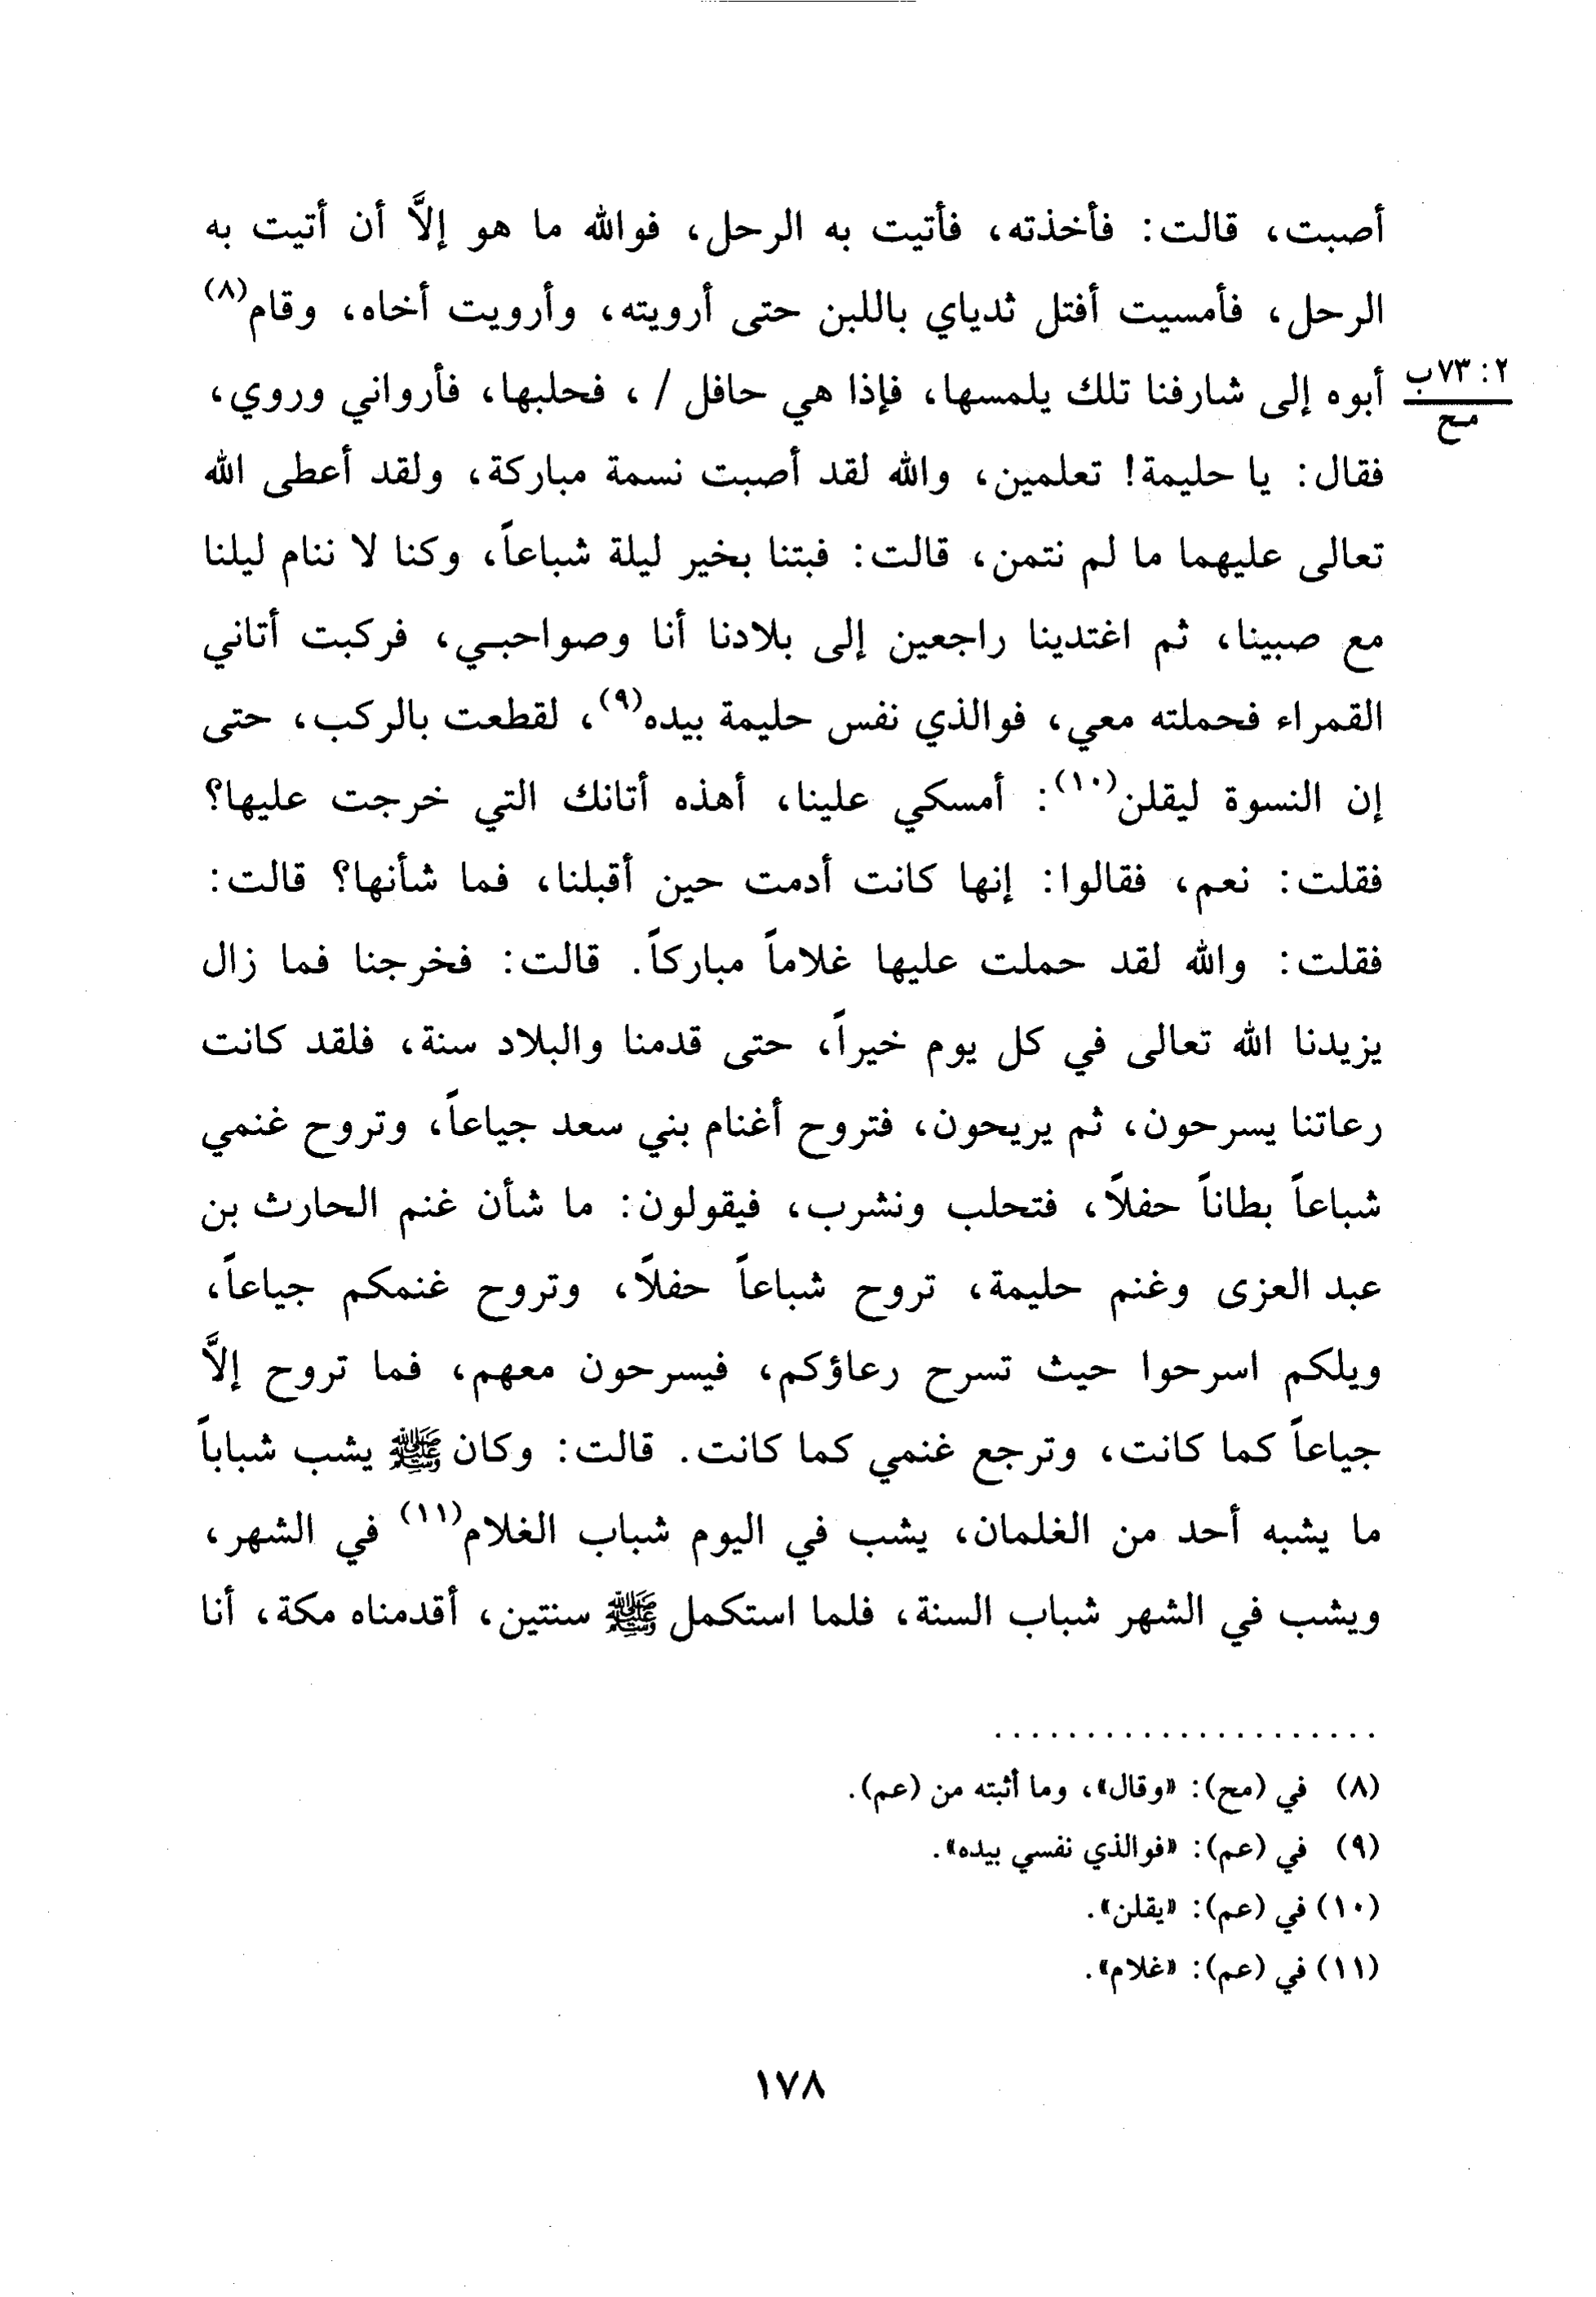 أصبت، قالت: فأخذته، فأتيت به الرحل، فوالله ما هو إلاَّ أن أتيت به
الرحل، فأمسيت أفتل ثدياي باللبن حتى أرويته، وأرويت أخاه، وقام(٨)
أبوه إلى شارفنا تلك يلمسها، فإذا هي حافل /، فحلبها، فأرواني وروي،
٢: ٧٣ب
مح
فقال: يا حليمة! تعلمين، والله لقد أصبت نسمة مباركة، ولقد أعطى الله
تعالى عليهما ما لم نتمن، قالت: فبتنا بخير ليلة شباعاً، وكنا لا ننام ليلنا
مع صبينا، ثم اغتدينا راجعين إلى بلادنا أنا وصواحبي، فركبت أتاني
القمراء فحملته معي، فوالذي نفس حليمة بيده(٩)، لقطعت بالركب، حتى
إن النسوة ليقلن(١٠): أمسكي علينا، أهذه أتانك التي خرجت عليها؟
فقلت: نعم، فقالوا: إنها كانت أدمت حين أقبلنا، فما شأنها؟ قالت:
فقلت: والله لقد حملت عليها غلاماً مباركاً. قالت: فخرجنا فما زال
يزيدنا الله تعالى في كل يوم خيراً، حتى قدمنا والبلاد سنة، فلقد كانت
رعاتنا يسرحون، ثم يريحون، فتروح أغنام بني سعد جياعاً، وتروح غنمي
شباعاً بطاناً حفلاً، فتحلب ونشرب، فيقولون: ما شأن غنم الحارث بن
عبد العزى وغنم حليمة، تروح شباعاً حفلاً، وتروح غنمكم جياعاً،
ويلكم اسرحوا حيث تسرح رعاؤكم، فيسرحون معهم، فما تروح إلاَّ
جياعاً كما كانت، وترجع غنمي كما كانت. قالت: وكان ﷺ يشب شباباً
ما يشبه أحد من الغلمان، يشب في اليوم شباب الغلام(١١) في الشهر،
ويشب في الشهر شباب السنة، فلما استكمل ﷺ سنتين، أقدمناه مكة، أنا
(٨) في (مح): «وقال»، وما أثبته من (عم).
(٩) في (عم): «فوالذي نفسي بيده».
(١٠) في (عم): «يقلن».
(١١) في (عم): «غلام».
١٧٨